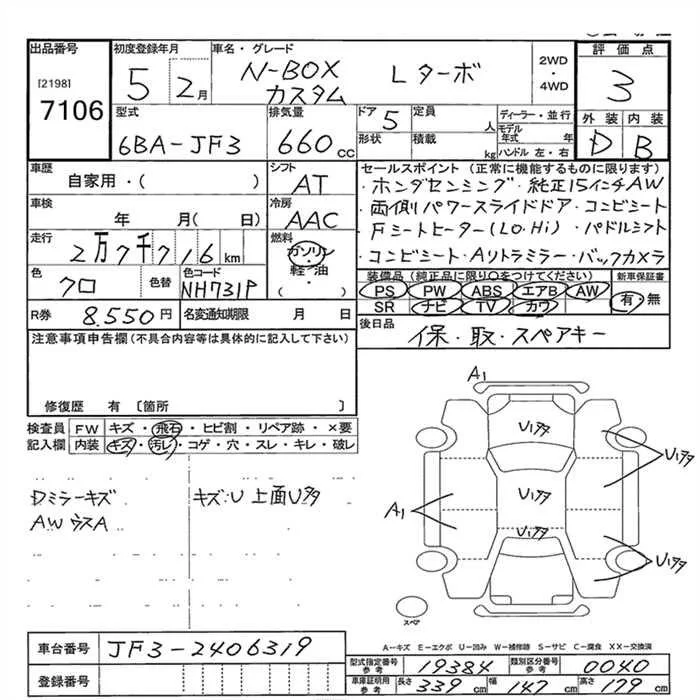 出品番号 初度登録年月 車名・グレード 2WD・4WD 評価点
[2198] 7106 5 2月 N-BOX カスタム Lターボ 3
型式 6BA-JF3 排気量 660cc ドア 5 定員 人 ディーラー・並行 外装 内装
形状 積載 kg モデル年式 年 ハンドル 左・右 D B
車歴 自家用・( ) シフト AT
車検 年 月( 日) 冷房 AAC
走行 2万7千716km 燃料 ガソリン・軽油・( )
色 クロ 色替 色コード NH731P
R券 8.550円 名変通知期限 月 日
セールスポイント (正常に機能するものに限ります)
・ホンダセンシング・純正15インチAW
・両側パワースライドドア・コンビシート
・Fシートヒーター(Lo.Hi)・パドルシフト
・コンビシート・Aリトラミラー・バックカメラ
装備品 (純正品に限り○をつけてください) 新車保証書
PS PW ABS エアB AW 有・無
SR ナビ TV カワ
後日品 保・取・スペアキー
注意事項申告欄(不具合内容等は具体的に記入して下さい)
修復歴 有 〔箇所 〕
検査員記入欄 FW キズ・飛石・ヒビ割・リペア跡・×要
内装 キズ・汚レ・コゲ・穴・スレ・キレ・破レ
Dミラーキズ キズ:U 上面U多
AWウスA
A1
U1タタ
U1タタ
U1タタ
A1
U1タタ
U1タタ
U1タタ
スペア
A-キズ E-エクボ U-凹み W-補修跡 S-サビ C-腐食 XX-交換済
車台番号 JF3-2406319
登録番号
型式指定番号参考 19384 類別区分番号参考 0040
車庫証明用参考 長さ 339cm 幅 147cm 高さ 179cm